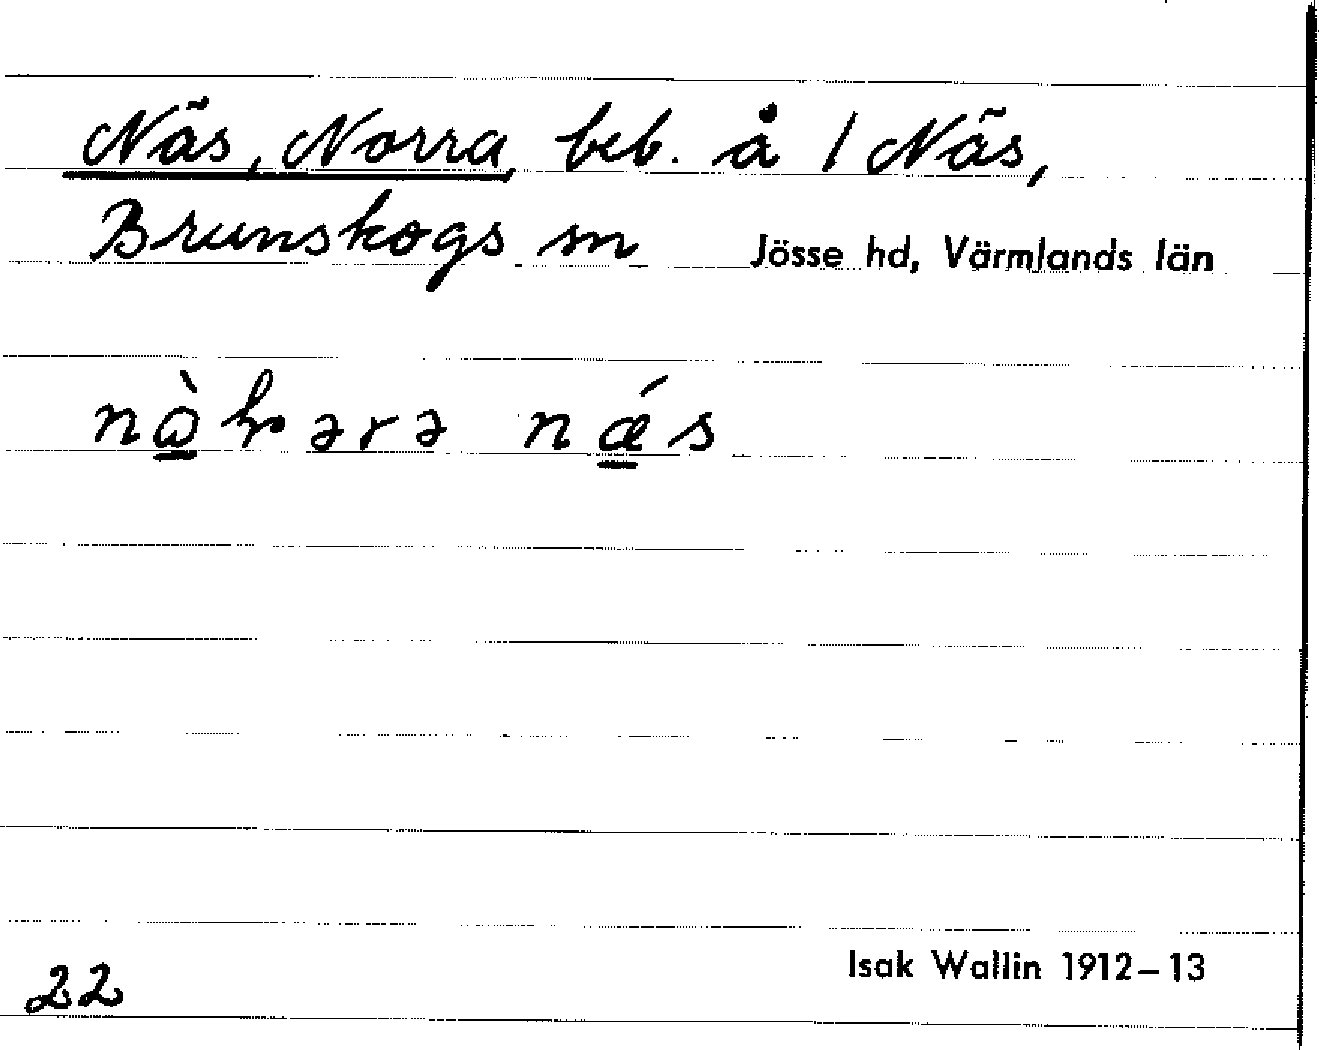 Näs, Norra, beb. å 1 Näs,
Brunskogs sn Jösse hd, Värmlands län
nǽs
Isak Wallin 1912–13
22